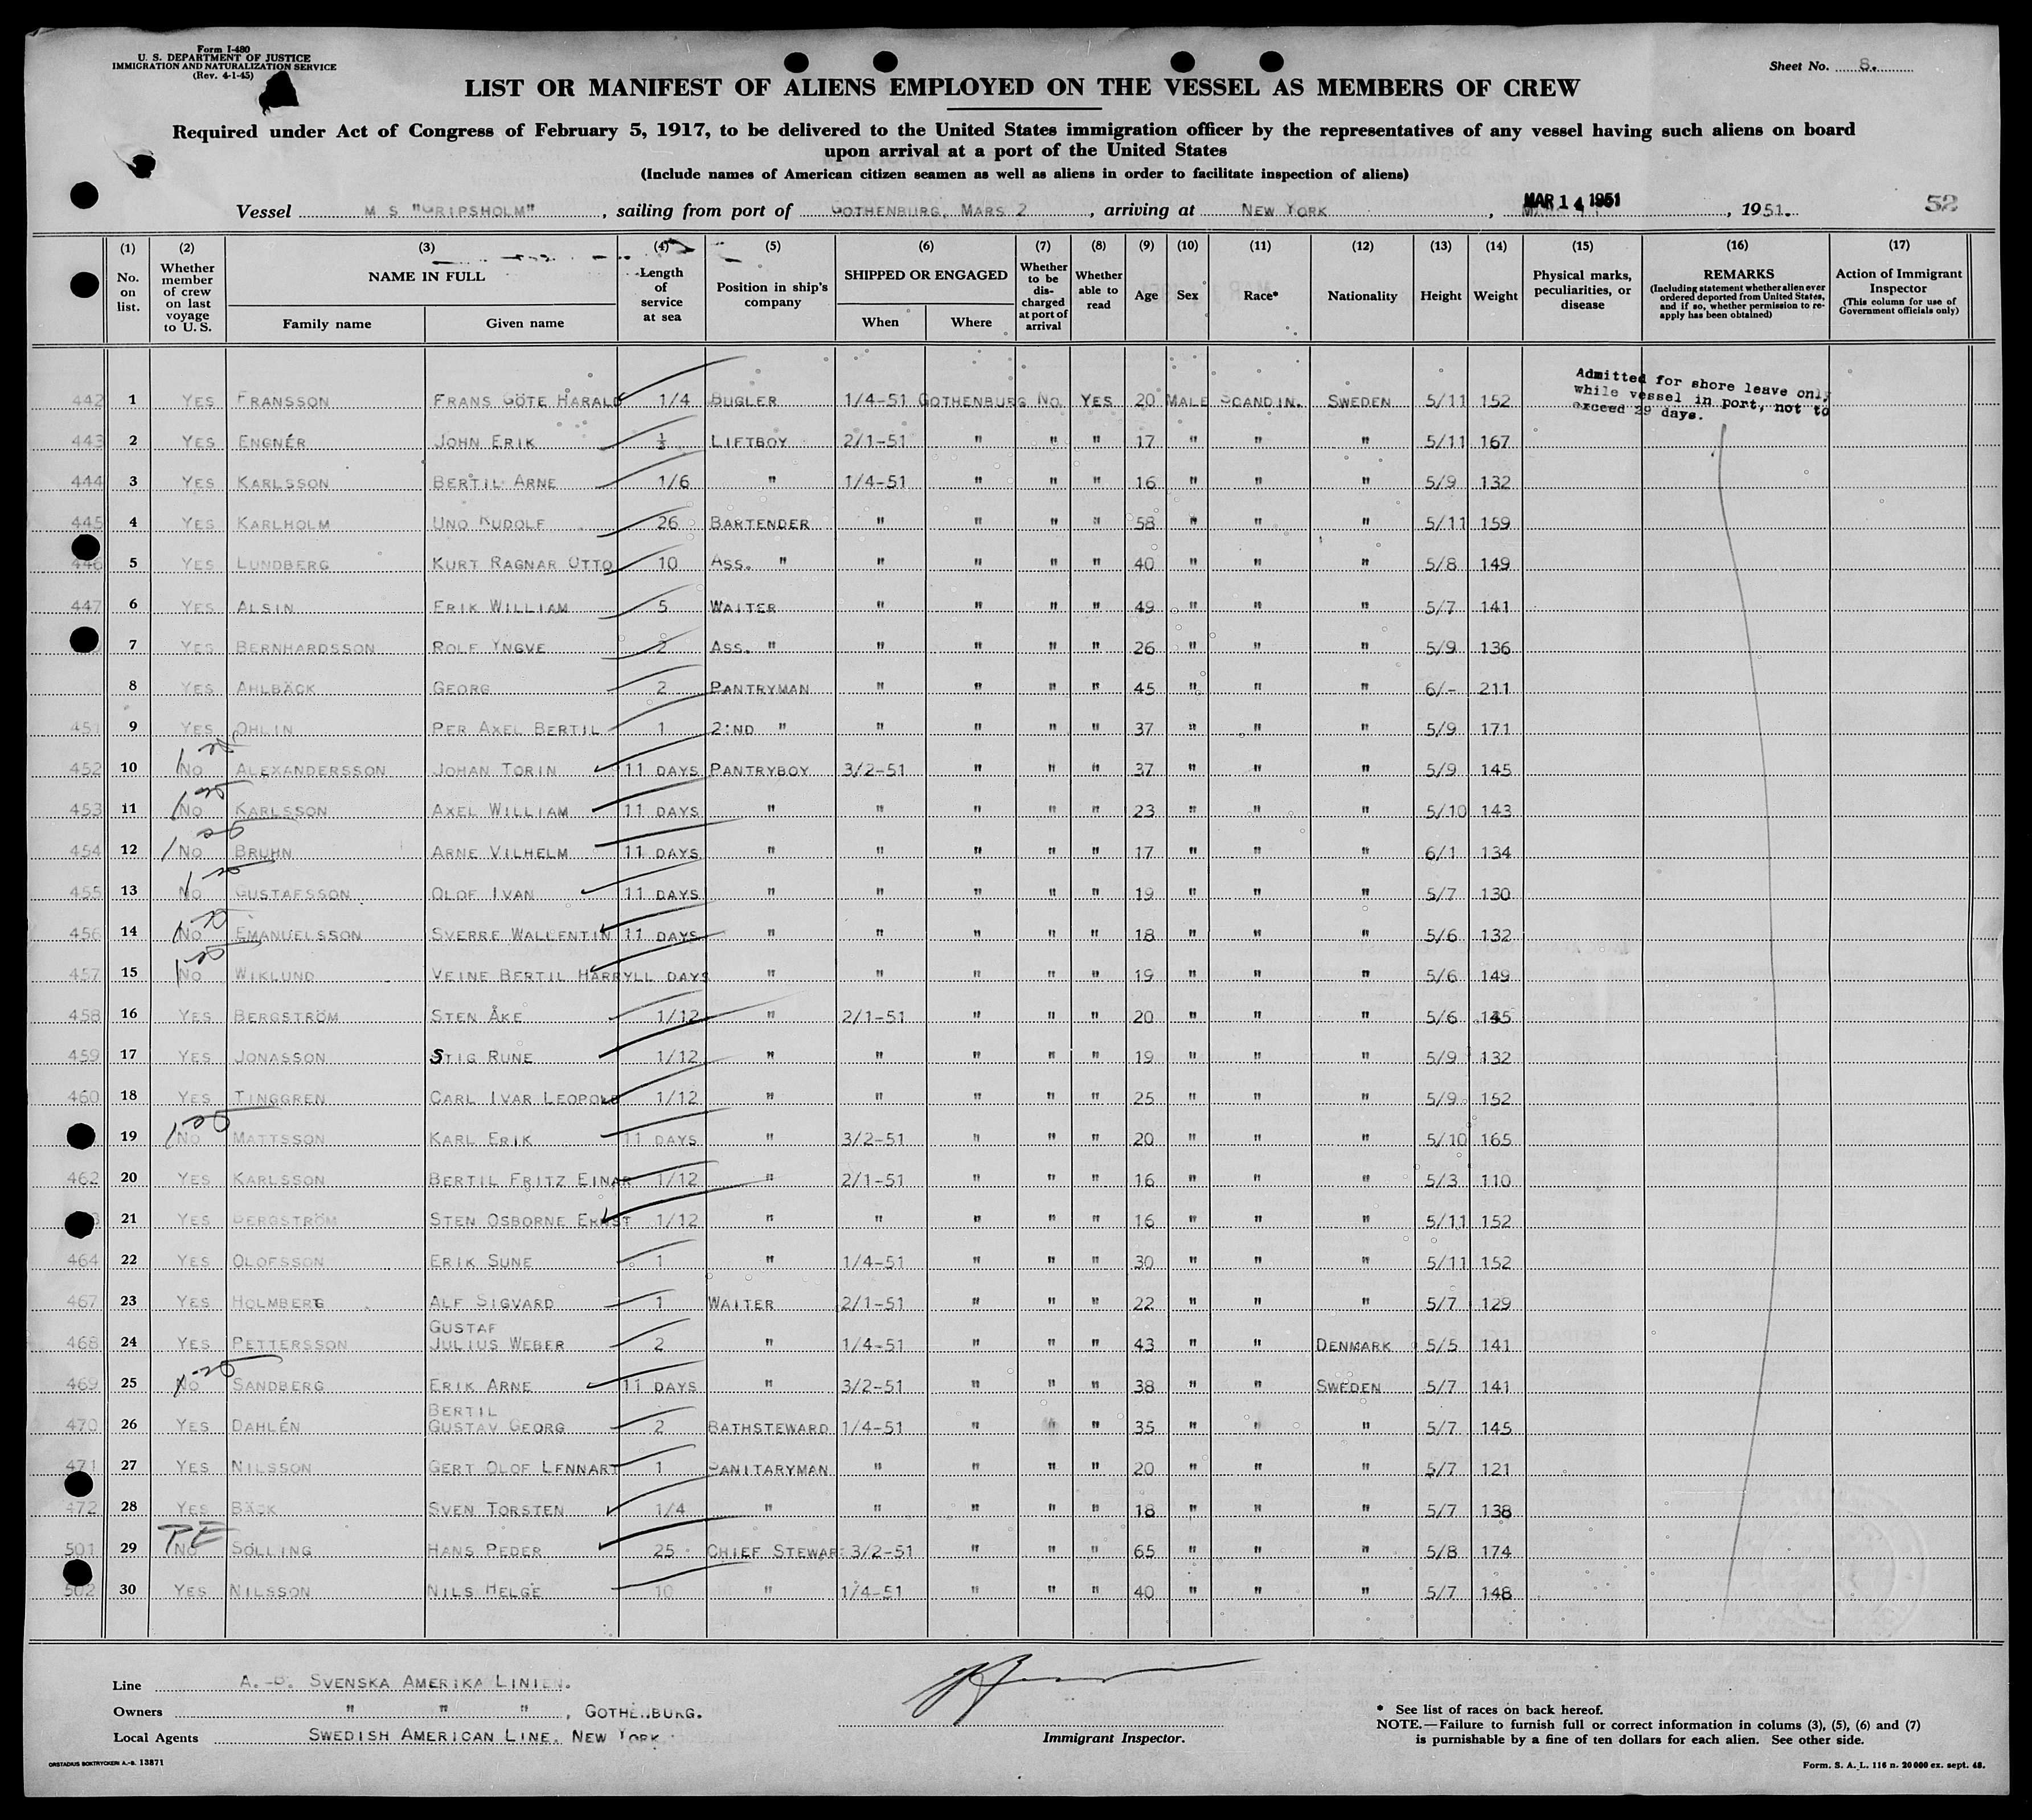 Form I-480
U. S. DEPARTMENT OF JUSTICE
IMMIGRATION AND NATURALIZATION SERVICE
(Rev. 4-1-45)
Sheet No. 8.
LIST OR MANIFEST OF ALIENS EMPLOYED ON THE VESSEL AS MEMBERS OF CREW
Required under Act of Congress of February 5, 1917, to be delivered to the United States immigration officer by the representatives of any vessel having such aliens on board
upon arrival at a port of the United States
(Include names of American citizen seamen as well as aliens in order to facilitate inspection of aliens)
Vessel M S "GRIPSHOLM", sailing from port of GOTHENBURG, MARS 2, arriving at NEW YORK, MAR 14 1951, 1951. 52
(1) (2) (3) (4) (5) (6) (7) (8) (9) (10) (11) (12) (13) (14) (15) (16) (17)
No. on list. Whether member of crew on last voyage to U. S. NAME IN FULL Family name Given name Length of service at sea Position in ship's company SHIPPED OR ENGAGED When Where Whether to be discharged at port of arrival Whether able to read Age Sex Race* Nationality Height Weight Physical marks, peculiarities, or disease REMARKS (Including statement whether alien ever ordered deported from United States, and if so, whether permission to re-apply has been obtained) Action of Immigrant Inspector (This column for use of Government officials only)
Admitted for shore leave only
while vessel in port, not to
exceed 29 days.
442 1 YES FRANSSON FRANS GÖTE HARALD 1/4 BUGLER 1/4-51 GOTHENBURG NO YES 20 MALE SCANDIN. SWEDEN 5/11 152
443 2 YES ENGNÉR JOHN ERIK ½ LIFTBOY 2/1-51 " " " 17 " " " 5/11 167
444 3 YES KARLSSON BERTIL ARNE 1/6 " 1/4-51 " " " 16 " " " 5/9 132
445 4 YES KARLHOLM UNO RUDOLF 26 BARTENDER " " " " 58 " " " 5/11 159
446 5 YES LUNDBERG KURT RAGNAR OTTO 10 ASS. " " " " " 40 " " " 5/8 149
447 6 YES ALSIN ERIK WILLIAM 5 WAITER " " " " 49 " " " 5/7 141
7 YES BERNHARDSSON ROLF YNGVE 2 ASS. " " " " " 26 " " " 5/9 136
8 YES AHLBÄCK GEORG 2 PANTRYMAN " " " " 45 " " " 6/- 211
451 9 YES OHLIN PER AXEL BERTIL 1 2:ND " " " " " 37 " " " 5/9 171
452 10 NO ALEXANDERSSON JOHAN TORIN 11 DAYS PANTRYBOY 3/2-51 " " " 37 " " " 5/9 145
453 11 NO KARLSSON AXEL WILLIAM 11 DAYS " " " " " 23 " " " 5/10 143
454 12 NO BRUHN ARNE VILHELM 11 DAYS " " " " " 17 " " " 6/1 134
455 13 NO GUSTAFSSON OLOF IVAN 11 DAYS " " " " " 19 " " " 5/7 130
456 14 NO EMANUELSSON SVERRE WALLENTIN 11 DAYS " " " " " 18 " " " 5/6 132
457 15 NO WIKLUND VEINE BERTIL HARRY 11 DAYS " " " " " 19 " " " 5/6 149
458 16 YES BERGSTRÖM STEN ÅKE 1/12 " 2/1-51 " " " 20 " " " 5/6 145
459 17 YES JONASSON STIG RUNE 1/12 " " " " " 19 " " " 5/9 132
460 18 YES TINGGREN CARL IVAR LEOPOLD 1/12 " " " " " 25 " " " 5/9 152
19 NO MATTSSON KARL ERIK 11 DAYS " 3/2-51 " " " 20 " " " 5/10 165
462 20 YES KARLSSON BERTIL FRITZ EINAR 1/12 " 2/1-51 " " " 16 " " " 5/3 110
21 YES BERGSTRÖM STEN OSBORNE ERNST 1/12 " " " " " 16 " " " 5/11 152
464 22 YES OLOFSSON ERIK SUNE 1 " 1/4-51 " " " 30 " " " 5/11 152
467 23 YES HOLMBERG ALF SIGVARD 1 WAITER 2/1-51 " " " 22 " " " 5/7 129
468 24 YES PETTERSSON GUSTAF JULIUS WEBER 2 " 1/4-51 " " " 43 " " DENMARK 5/5 141
469 25 NO SANDBERG ERIK ARNE 11 DAYS " 3/2-51 " " " 38 " " SWEDEN 5/7 141
470 26 YES DAHLÉN BERTIL GUSTAV GEORG 2 BATHSTEWARD 1/4-51 " " " 35 " " " 5/7 145
471 27 YES NILSSON GERT OLOF LENNART 1 SANITARYMAN " " " " 20 " " " 5/7 121
472 28 YES BÄCK SVEN TORSTEN 1/4 " " " " " 18 " " " 5/7 138
PE
501 29 NO SÖLLING HANS PEDER 25 CHIEF STEWAR 3/2-51 " " " 65 " " " 5/8 174
502 30 YES NILSSON NILS HELGE 10 " 1/4-51 " " " 40 " " " 5/7 148
Line A.-B. SVENSKA AMERIKA LINIEN.
Owners " " ", GOTHENBURG.
Local Agents SWEDISH AMERICAN LINE. NEW YORK.
Immigrant Inspector.
* See list of races on back hereof.
NOTE.—Failure to furnish full or correct information in colums (3), (5), (6) and (7)
is punishable by a fine of ten dollars for each alien. See other side.
ORSTADIUS BOKTRYCKERI A.-B. 13871
Form. S. A. L. 116 n. 20 000 ex. sept. 48.